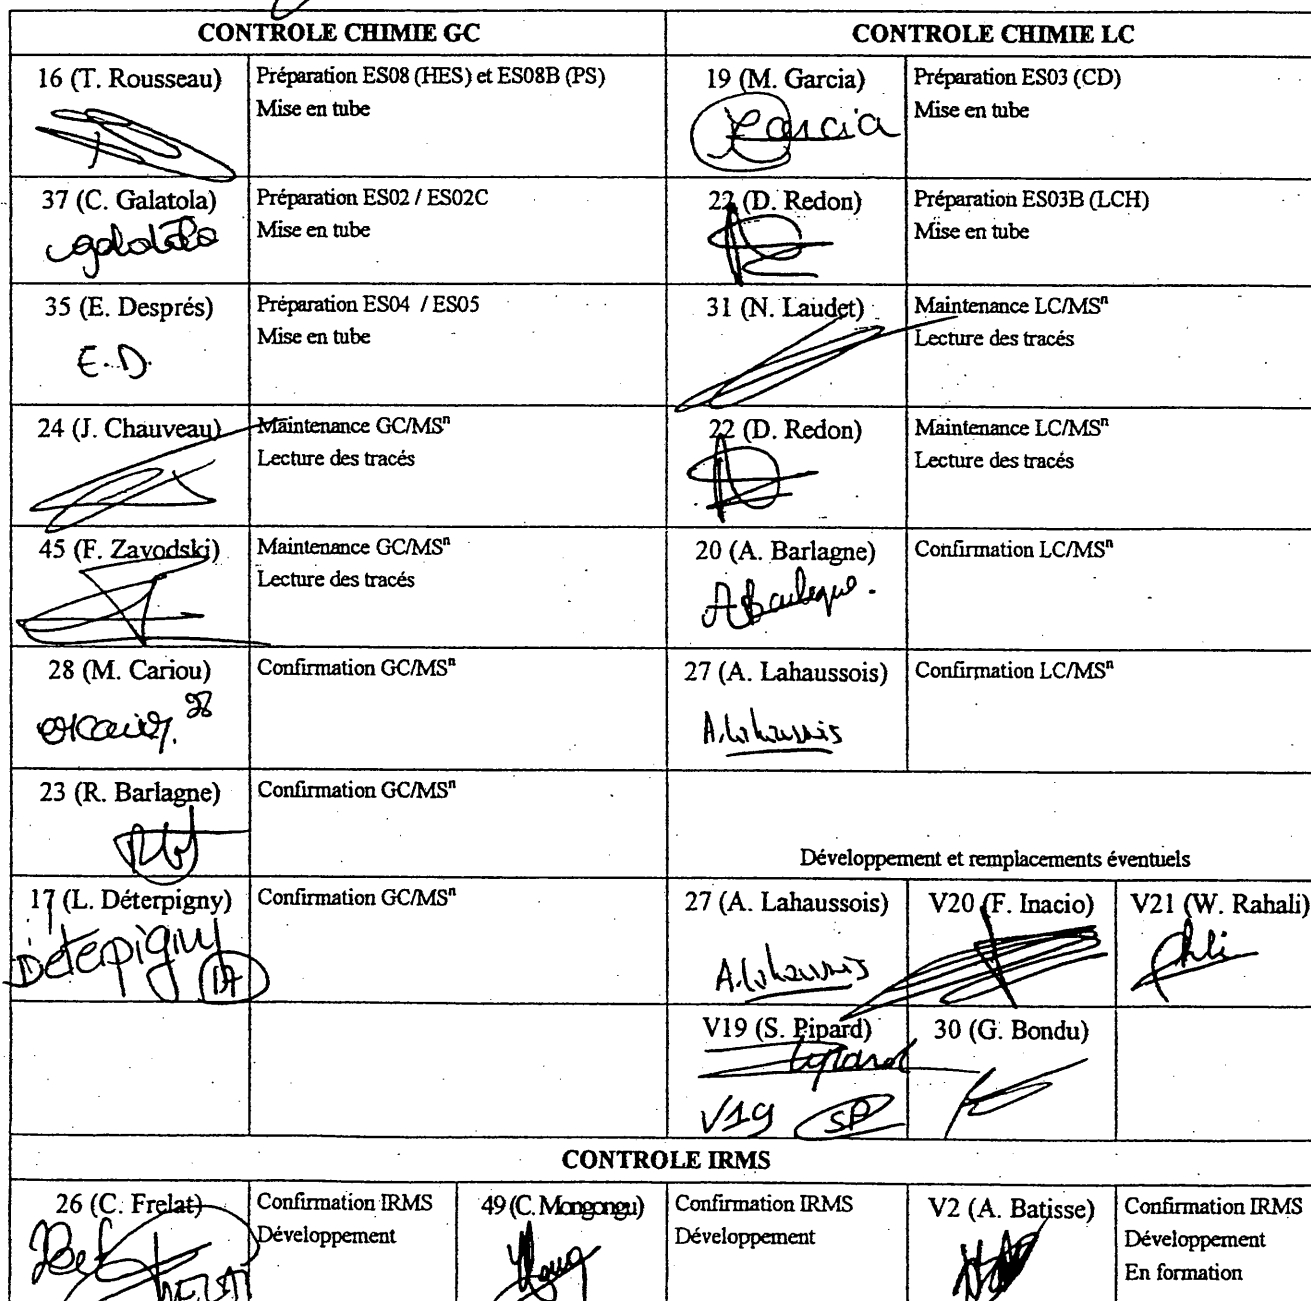 CONTROLE CHIMIE GC
CONTROLE CHIMIE LC
16 (T. Rousseau)
Préparation ES08 (HES) et ES08B (PS)
Mise en tube
19 (M. Garcia)
Garcia
Préparation ES03 (CD)
Mise en tube
37 (C. Galatola)
galatola
Préparation ES02 / ES02C
Mise en tube
22 (D. Redon)
Préparation ES03B (LCH)
Mise en tube
35 (E. Després)
E.D.
Préparation ES04 / ES05
Mise en tube
31 (N. Laudet)
Maintenance LC/MSⁿ
Lecture des tracés
24 (J. Chauveau)
Maintenance GC/MSⁿ
Lecture des tracés
22 (D. Redon)
Maintenance LC/MSⁿ
Lecture des tracés
45 (F. Zavodski)
Maintenance GC/MSⁿ
Lecture des tracés
20 (A. Barlagne)
ABarlagne.
Confirmation LC/MSⁿ
28 (M. Cariou)
28
Confirmation GC/MSⁿ
27 (A. Lahaussois)
A.Lahaussois
Confirmation LC/MSⁿ
23 (R. Barlagne)
Confirmation GC/MSⁿ
Développement et remplacements éventuels
17 (L. Déterpigny)
Déterpigny
17
Confirmation GC/MSⁿ
27 (A. Lahaussois)
A.Lahaussois
V20 (F. Inacio)
V21 (W. Rahali)
V19 (S. Pipard)
V19 SP
30 (G. Bondu)
CONTROLE IRMS
26 (C. Frelat)
Confirmation IRMS
Développement
49 (C. Mongongu)
Confirmation IRMS
Développement
V2 (A. Batisse)
Confirmation IRMS
Développement
En formation